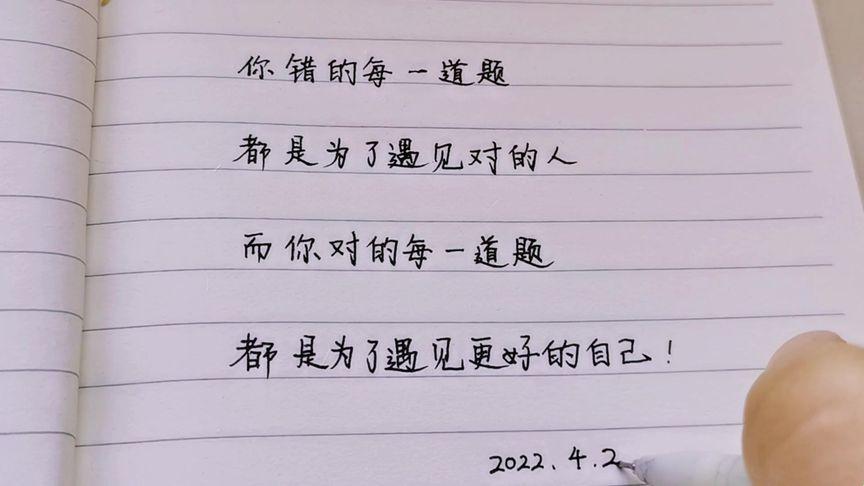 你错的每一道题
都是为了遇见对的人
而你对的每一道题
都是为了遇见更好的自己!
2022.4.2